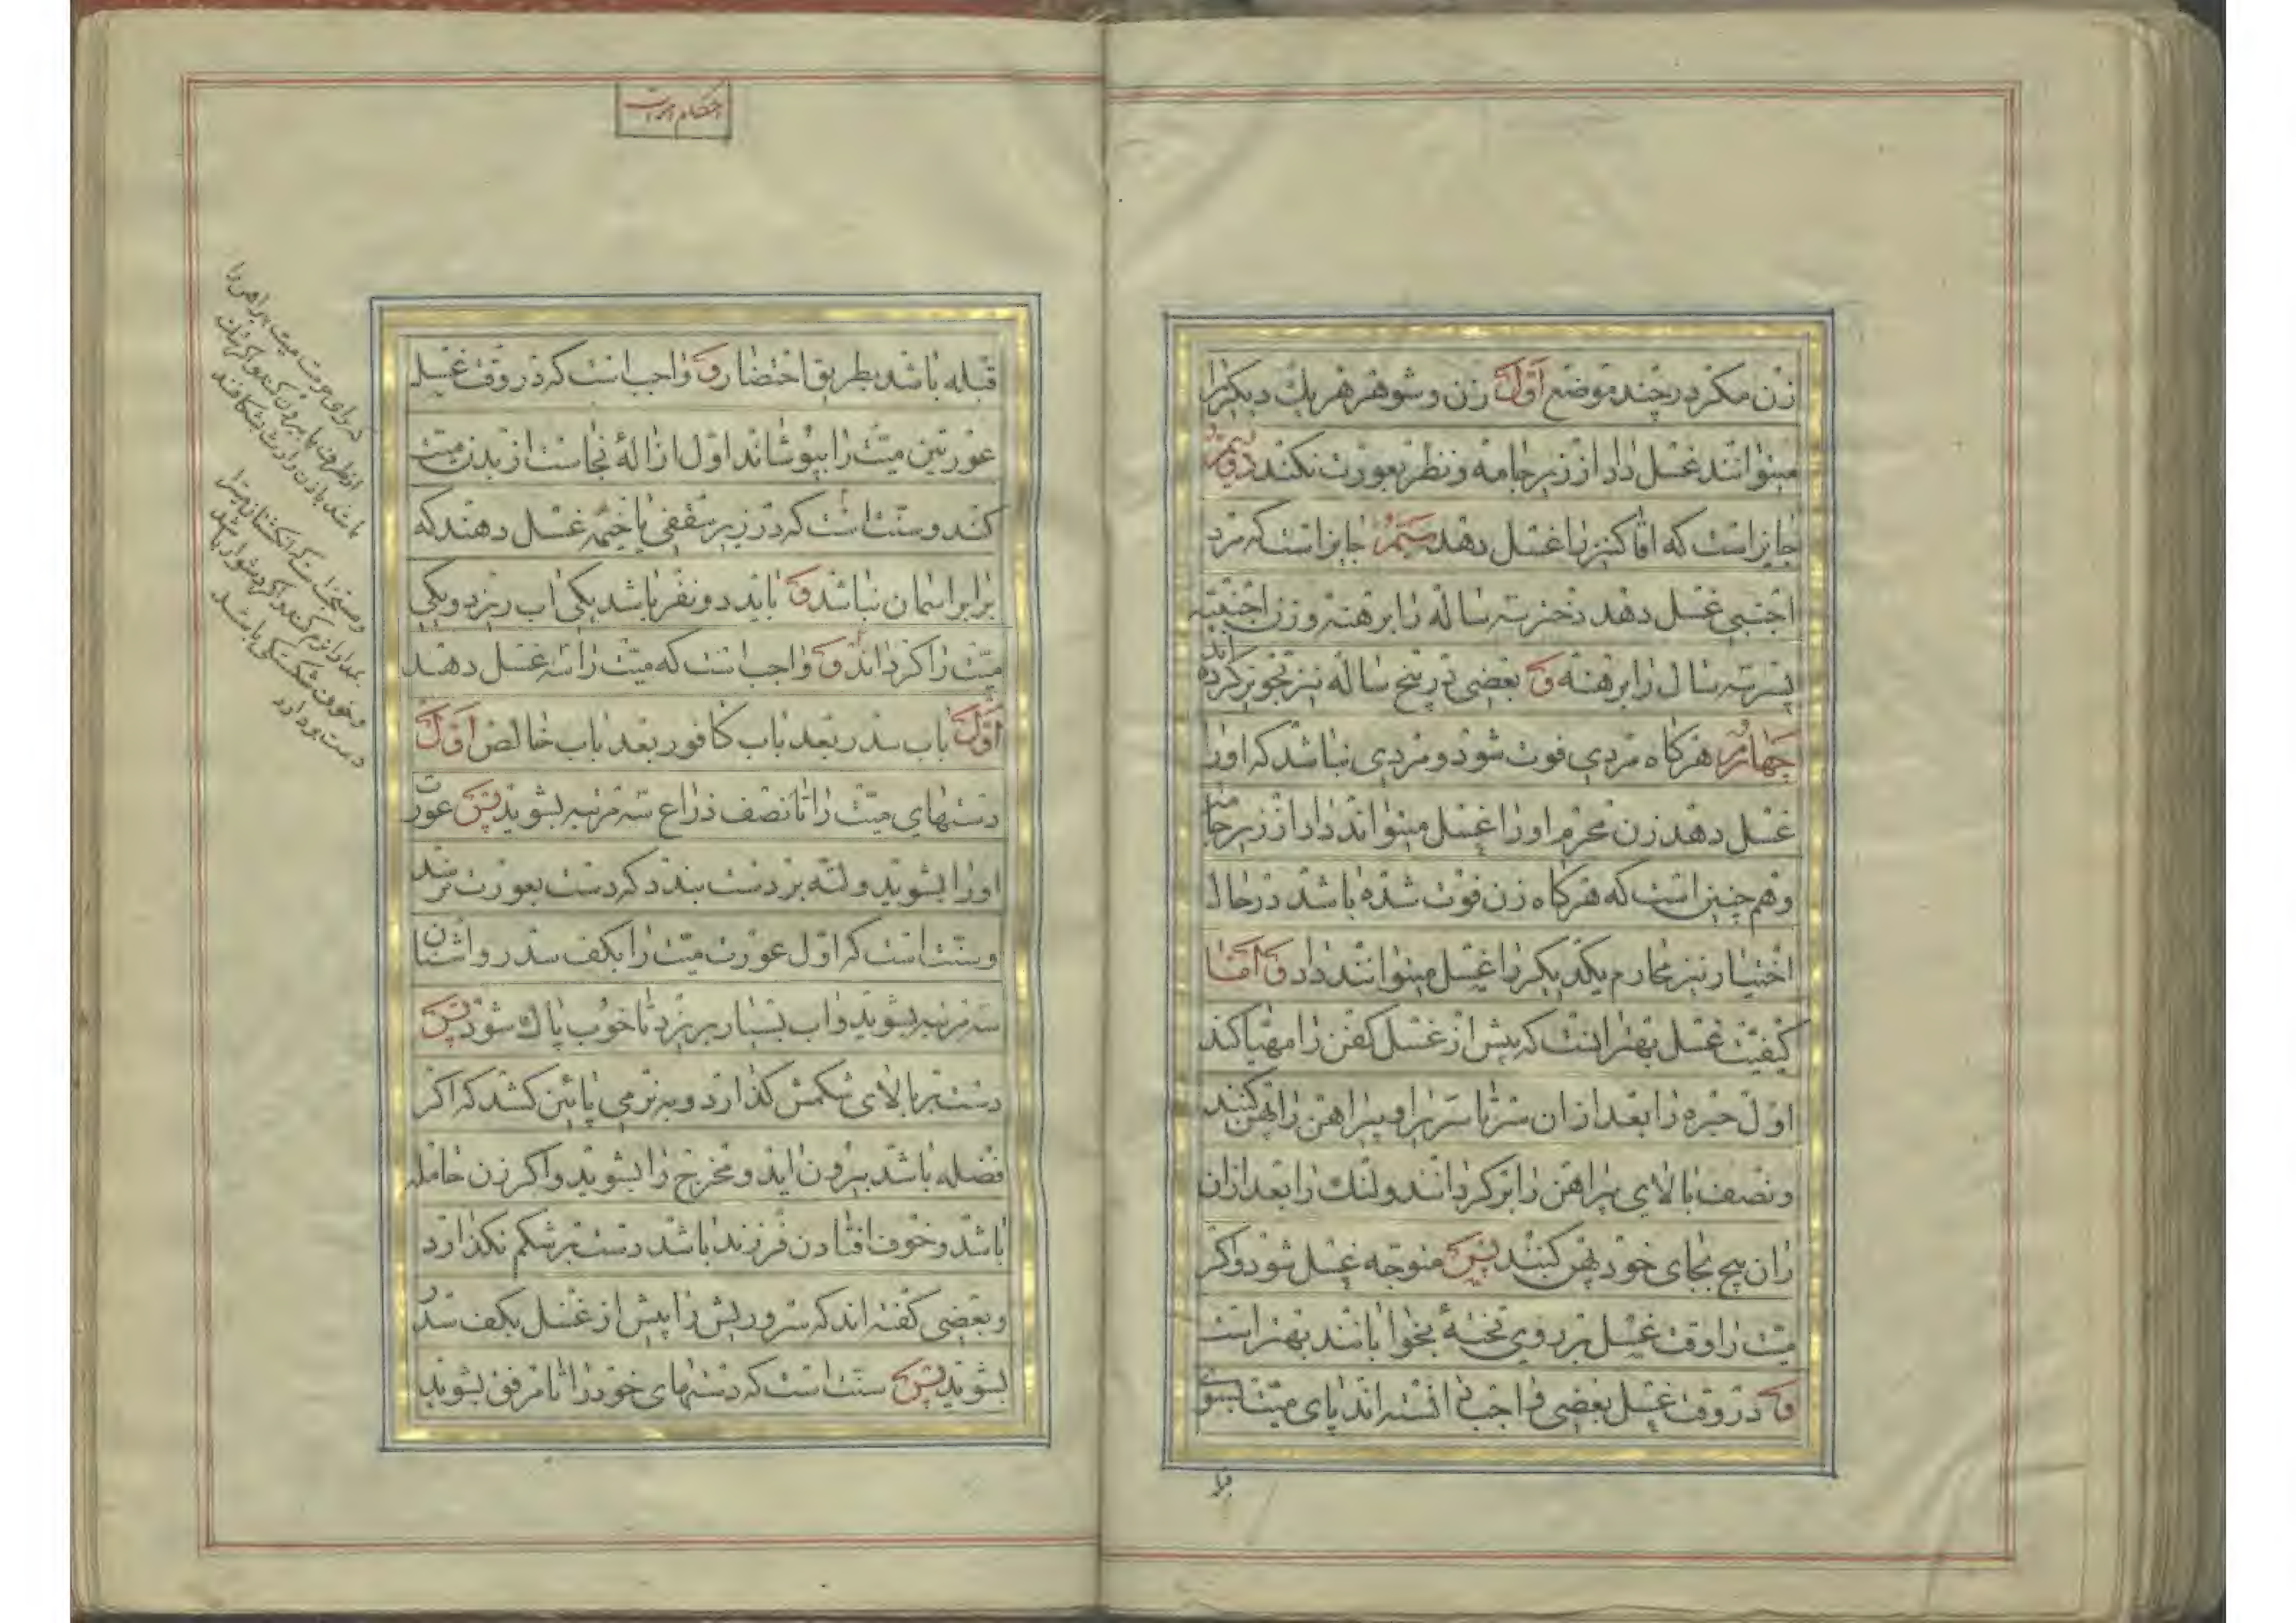 زن مکر در چند موضع اوّل زن و شوهر هر یك دیکر را
میتوانند غسل داد از زیر جامه و نظر بعورت نکنند دویّم
جایز است که اقا کنیز را غسل دهد سیّم جایز است که مرد
اجنبی غسل دهد دختر سه ساله را برهنه و زن اجنبیّه
پسر سه سال را برهنه و بعضی در پنج ساله نیز تجویز کرده اند
چهارم هرکاه مردی فوت شود و مردی نباشد که او را
غسل دهد زن محرم او را غسل میتواند داد از زیر جامه
و هم چنین است که هرکاه زن فوت شده باشد در حال
اختیار نیز محارم یکدیکر را غسل میتوانند داد و امّا
کیفیّت غسل بهتر انست که پیش از غسل کفن را مهیّا کند
اوّل حبره را بعد از ان سرتاسر را و پیراهن را پهن کنند
و نصف بالای پیراهن را برکردانند و لنك را بعد از ان
ران پیچ بجای خود پهن کنند پس متوجّه غسل شود و اکر
میّت را وقت غسل بر روی تختهٔ بخوابانند بهتر است
و در وقت غسل بعضی واجب دانسته اند پای میّت بسوی
قبله باشد بطریق احتضار و واجب است که در وقت غسل
عورتین میّت را بپوشاند اوّل ازالهٔ نجاست از بدن میّت
کند و سنّت است که در زیر سقفی یا خیمه غسل دهند که
برابر اسمان نباشد و باید دو نفر باشد یکی اب ریزد و یکی
میّت را کرداند و واجب است که میّت را سه غسل دهند
اوّل باب سدر بعد باب کافور بعد باب خالص اوّل
دستهای میّت را تا نصف ذراع سه مرتبه بشوید پس عورت
او را بشوید و لته بر دست بندد که دست بعورت نرسد
و سنّت است که اوّل عورت میّت را بکف سدر و اشنان
سه مرتبه بشوید و اب بسیار بریزد تا خوب پاك شود پس
دست بر بالای شکمش کذارد و به نرمی پائین کشد که اکر
فضله باشد بیرون اید و مخرج را بشوید و اکر زن حامله
باشد و خوف افتادن فرزند باشد دست بر شکم نکذارد
و بعضی کفته اند که سر و ریش را پیش از غسل بکف سدر
بشوید پس سنّت است که دستهای خود را تا مرفق بشوید
احکام اموات
میت پیراهن را
از طرف پا بیرون کند و اکر تنک
باشد باذن وارث بشکافند
و مستحب است که انکشتان میّت را
نرم کند و اکر دشوار باشد
و خوف شکستکی باشد
دست بردارد